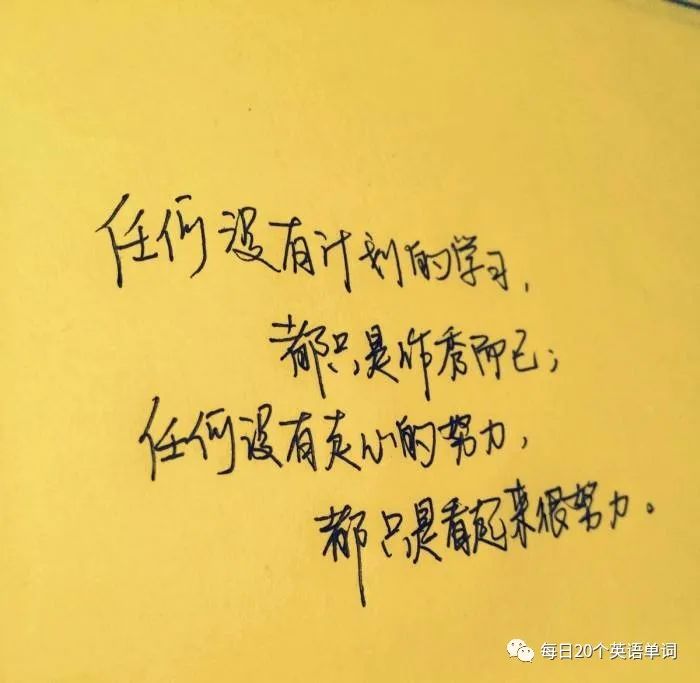 任何没有计划的学习,
都只是作秀而已;
任何没有走心的努力,
都只是看起来很努力。
每日20个英语单词